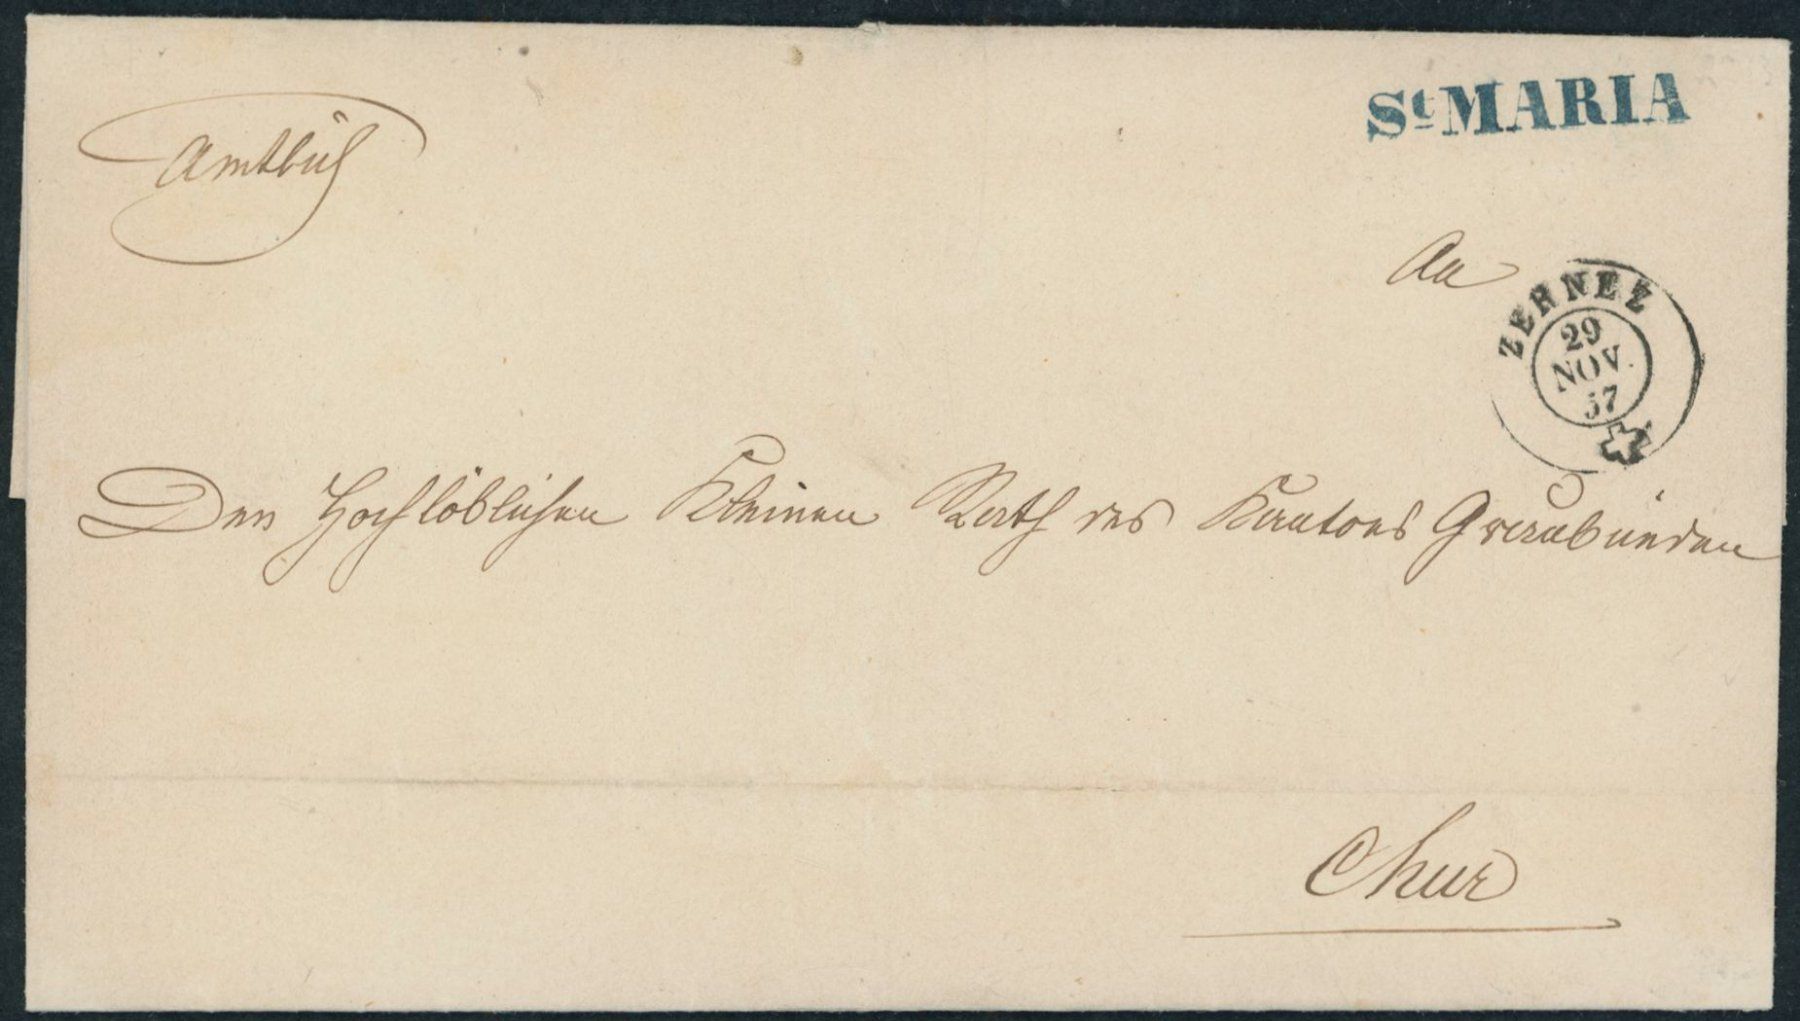 Amtlich
St MARIA
An
ZERNEZ
29
NOV.
57
Den Hochlöblichen Kleinen Rath des Kantons Graubünden
Chur